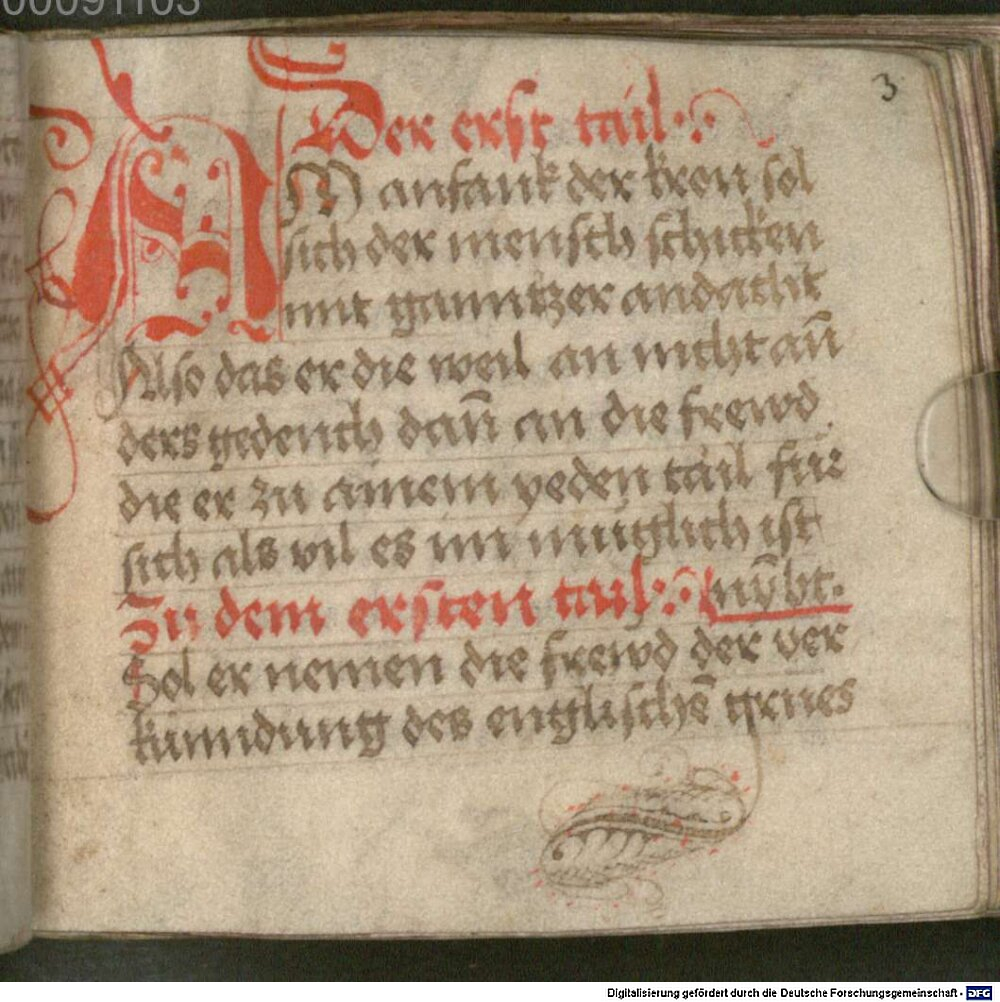 00091103
3
Der erst tail
AM anfank der kron sol
sich der mensch schicken
mit ganntzer andacht
Also das er die weil an nicht an̄
ders gedench dan̄ an die frewd
die er zu ainem yeden tail für
sich als vil es im müglich ist
Zu dem ersten tail: nÿbt.
Sol er nemen die frewd der ver
kunndung des englischē grues
Digitalisierung gefördert durch die Deutsche Forschungsgemeinschaft - DFG